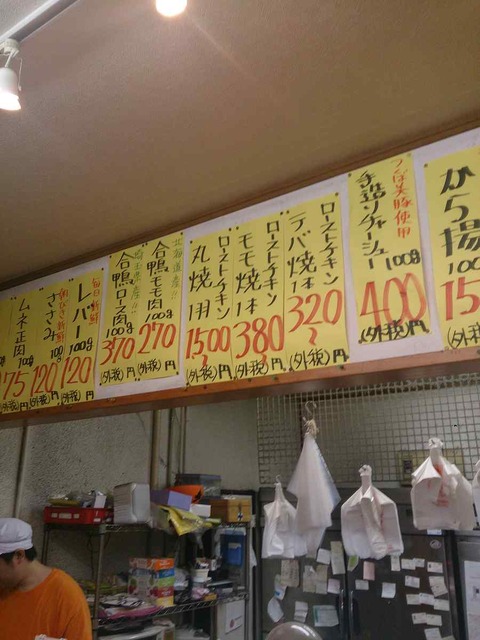 から揚
100
15
(外税)
つくば美豚使用
手造りチャーシュー
100g
400
(外税)円
ローストチキン
テバ焼1本
320〜
(外税)円
ローストチキン
モモ焼1本
380
(外税)円
ローストチキン
丸焼1羽
1500〜
(外税)円
北海道産!!
合鴨モモ肉
100g
270
(外税)円
埼玉県産!!
合鴨ロース肉
100g
370
(外税)円
レバー
100g
120
(外税)円
ささみ
100g
120
(外税)円
ムネ正肉
100g
75
(外税)円